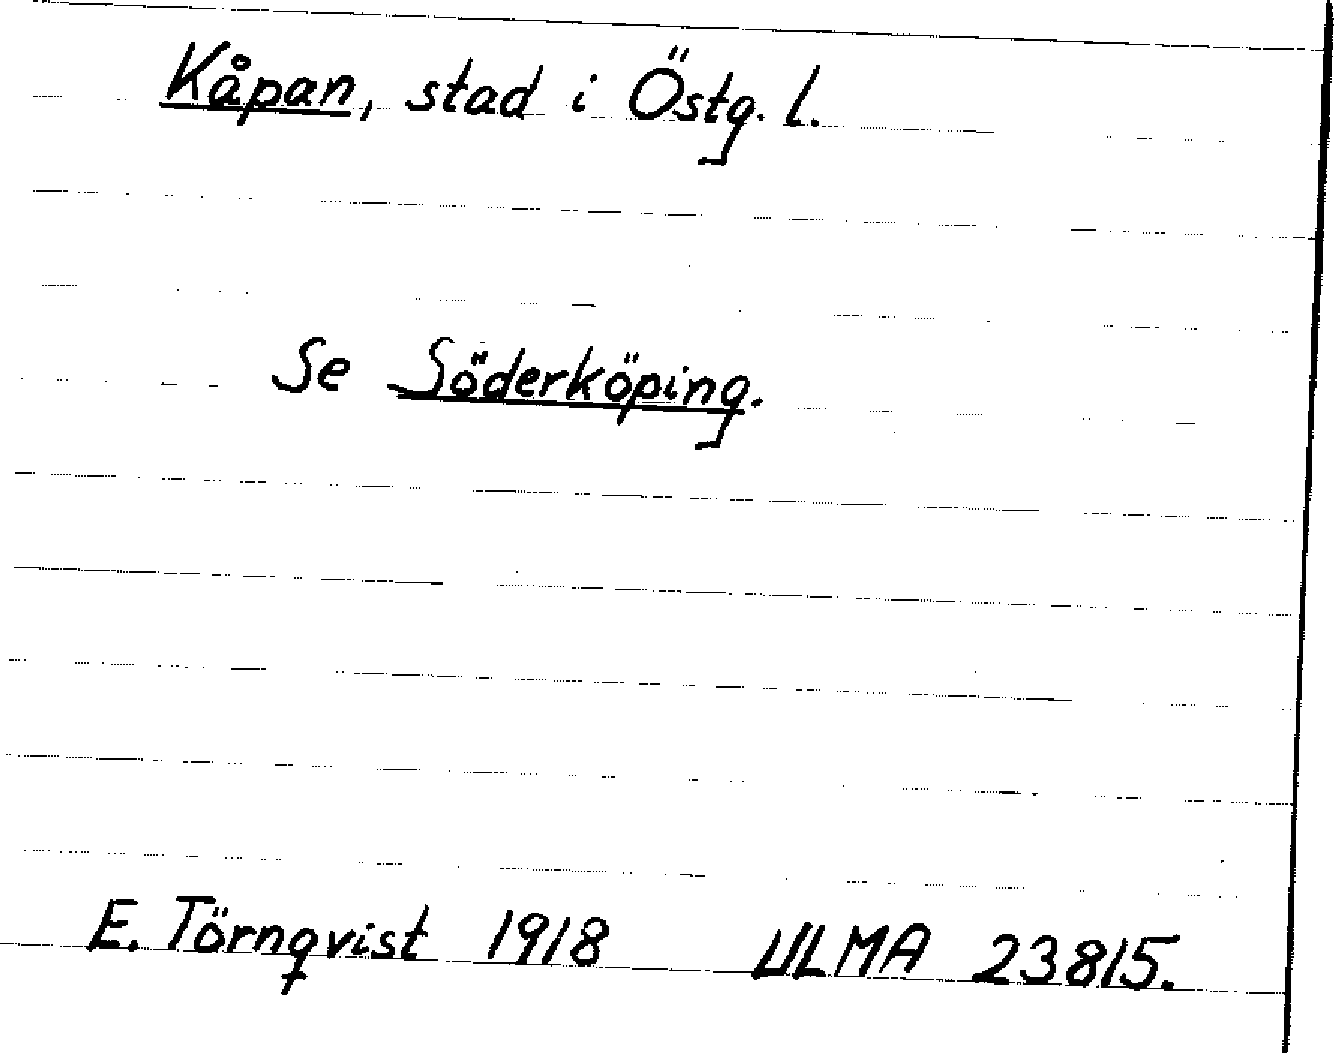 Kåpan, stad i Östg. l.
Se Söderköping.
E. Törnqvist 1918 ULMA 23815.